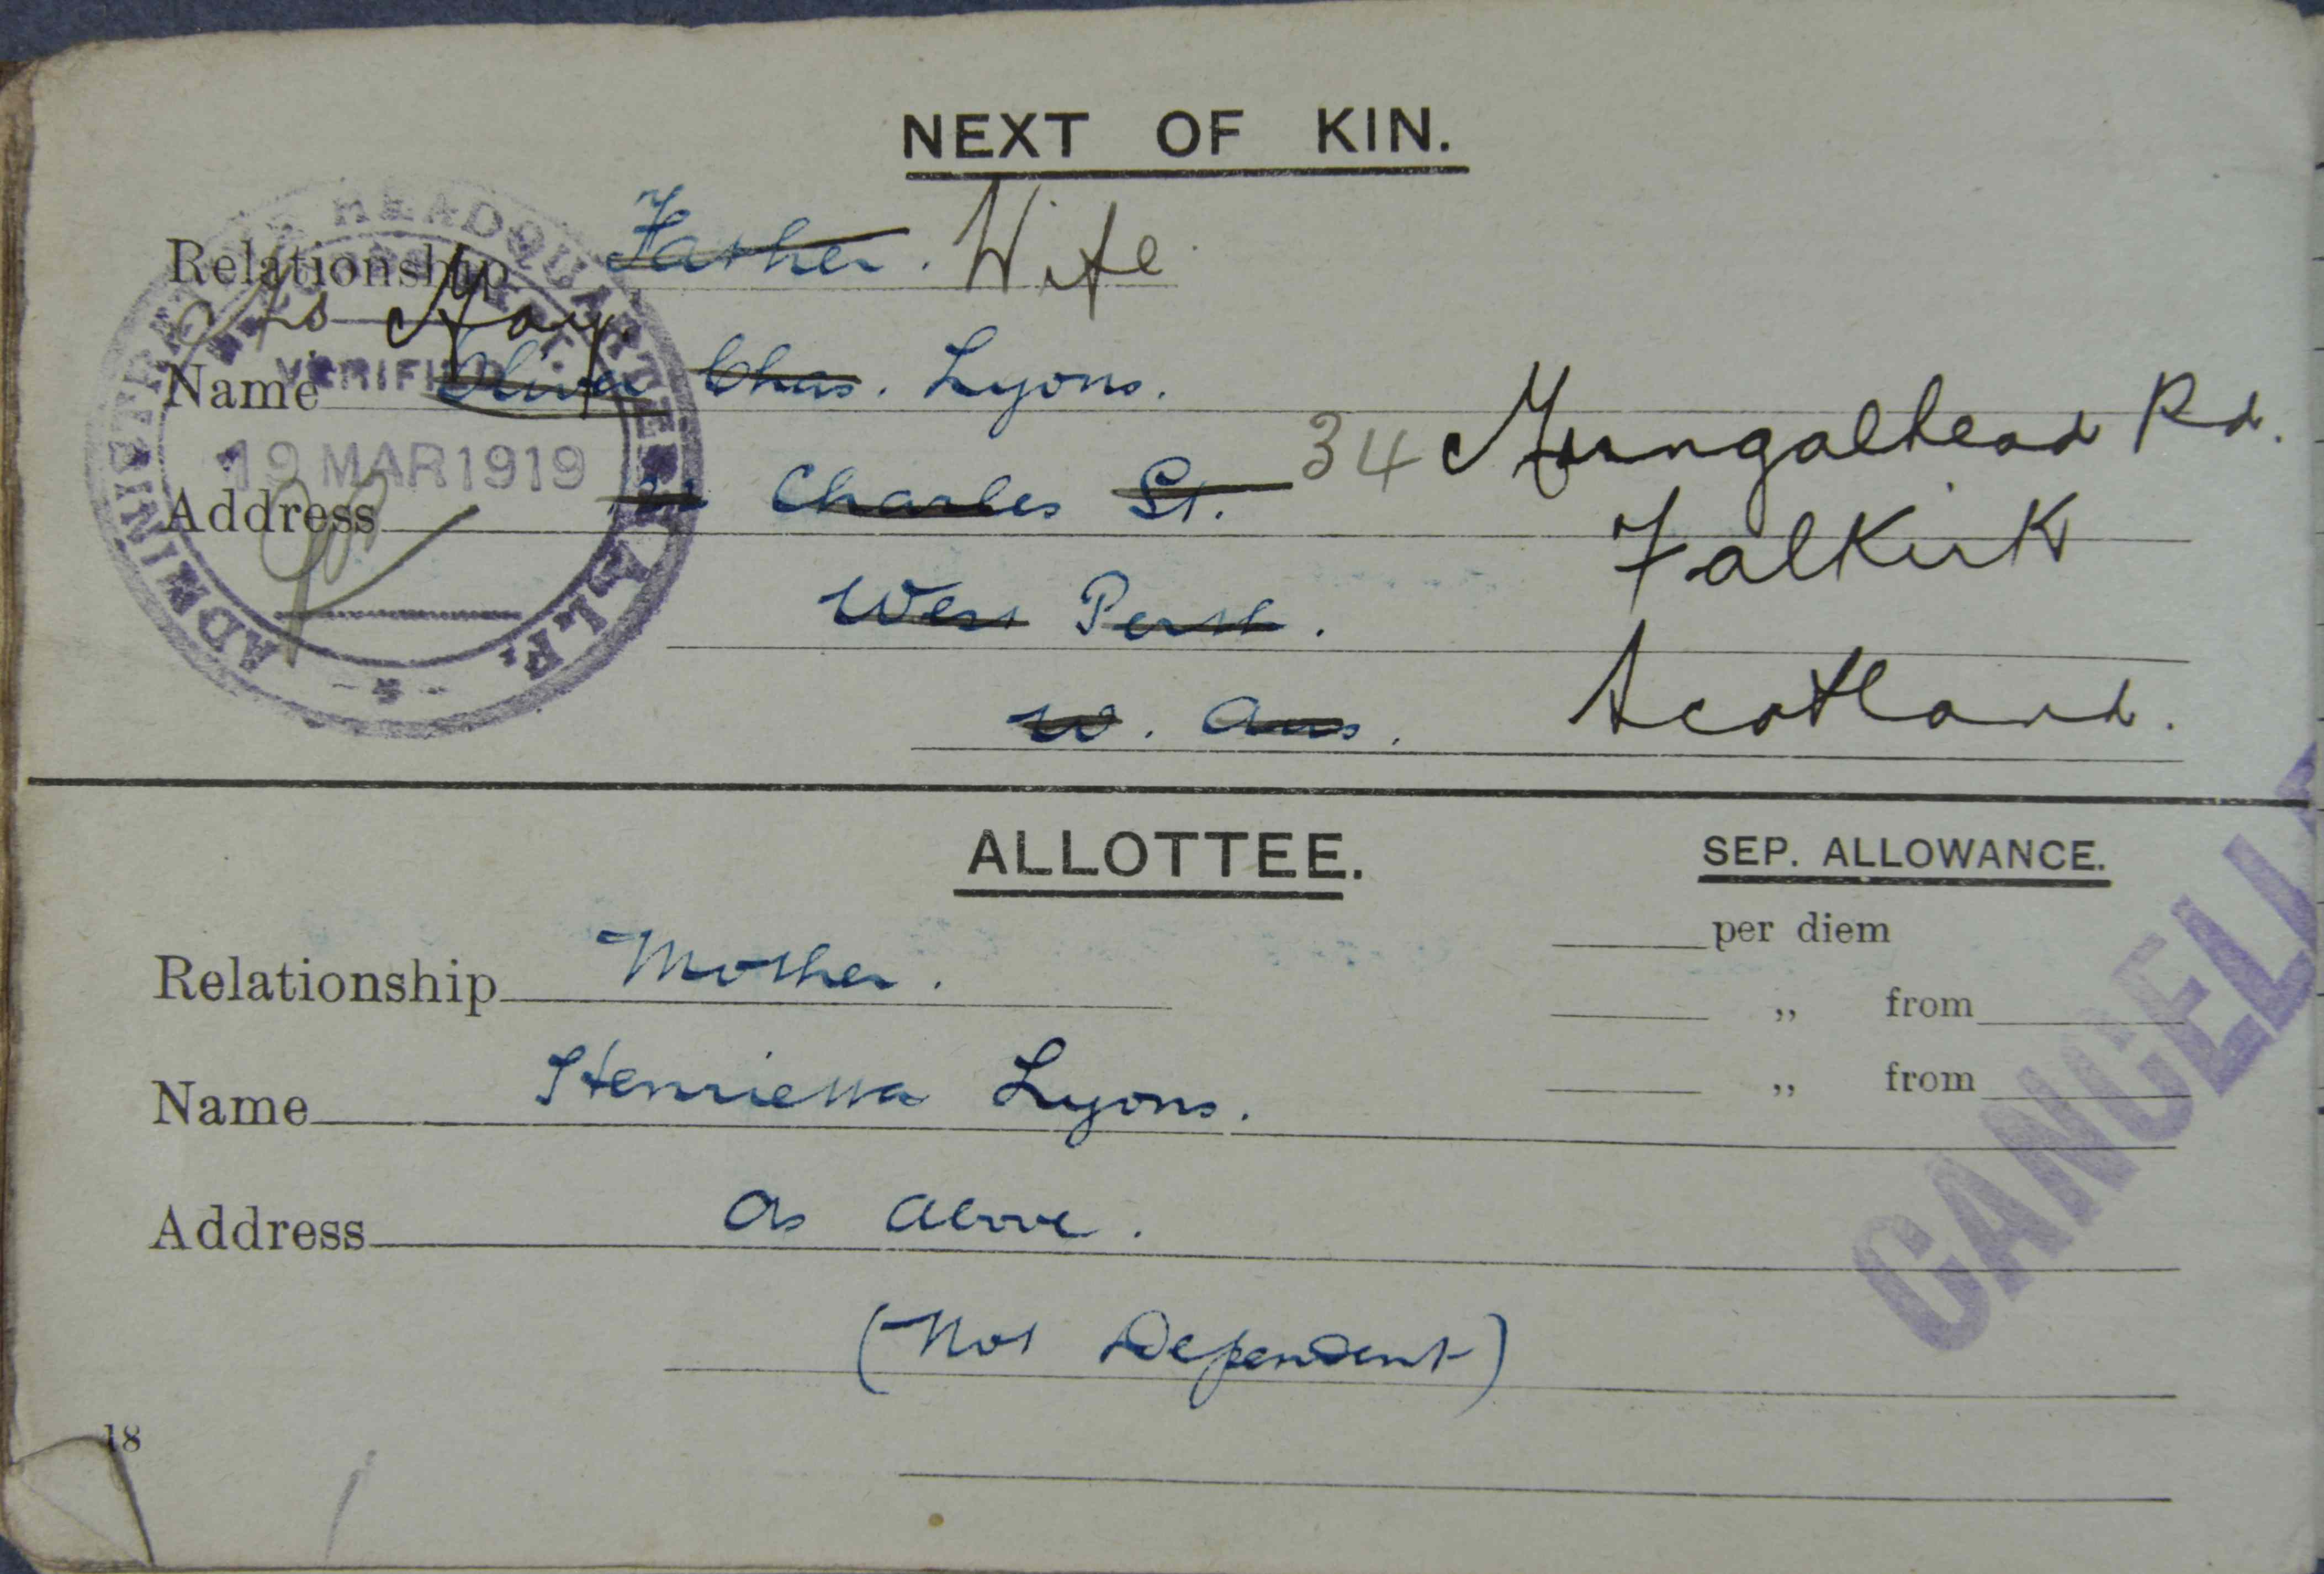 NEXT OF KIN.
Relationship Father. Wife
May
Name Oliver Chas. Lyons.
Address Charles St. 34 Mungalhead Rd.
West Perth. Falkirk
W. Aus. Scotland.
ADMINISTRATIVE HEADQUARTERS A.I.F.
VERIFIED
19 MAR 1919
ALLOTTEE. SEP. ALLOWANCE.
per diem
Relationship Mother. „ from
Name Henrietta Lyons. „ from
Address As above.
(Not Dependent)
CANCELL
18